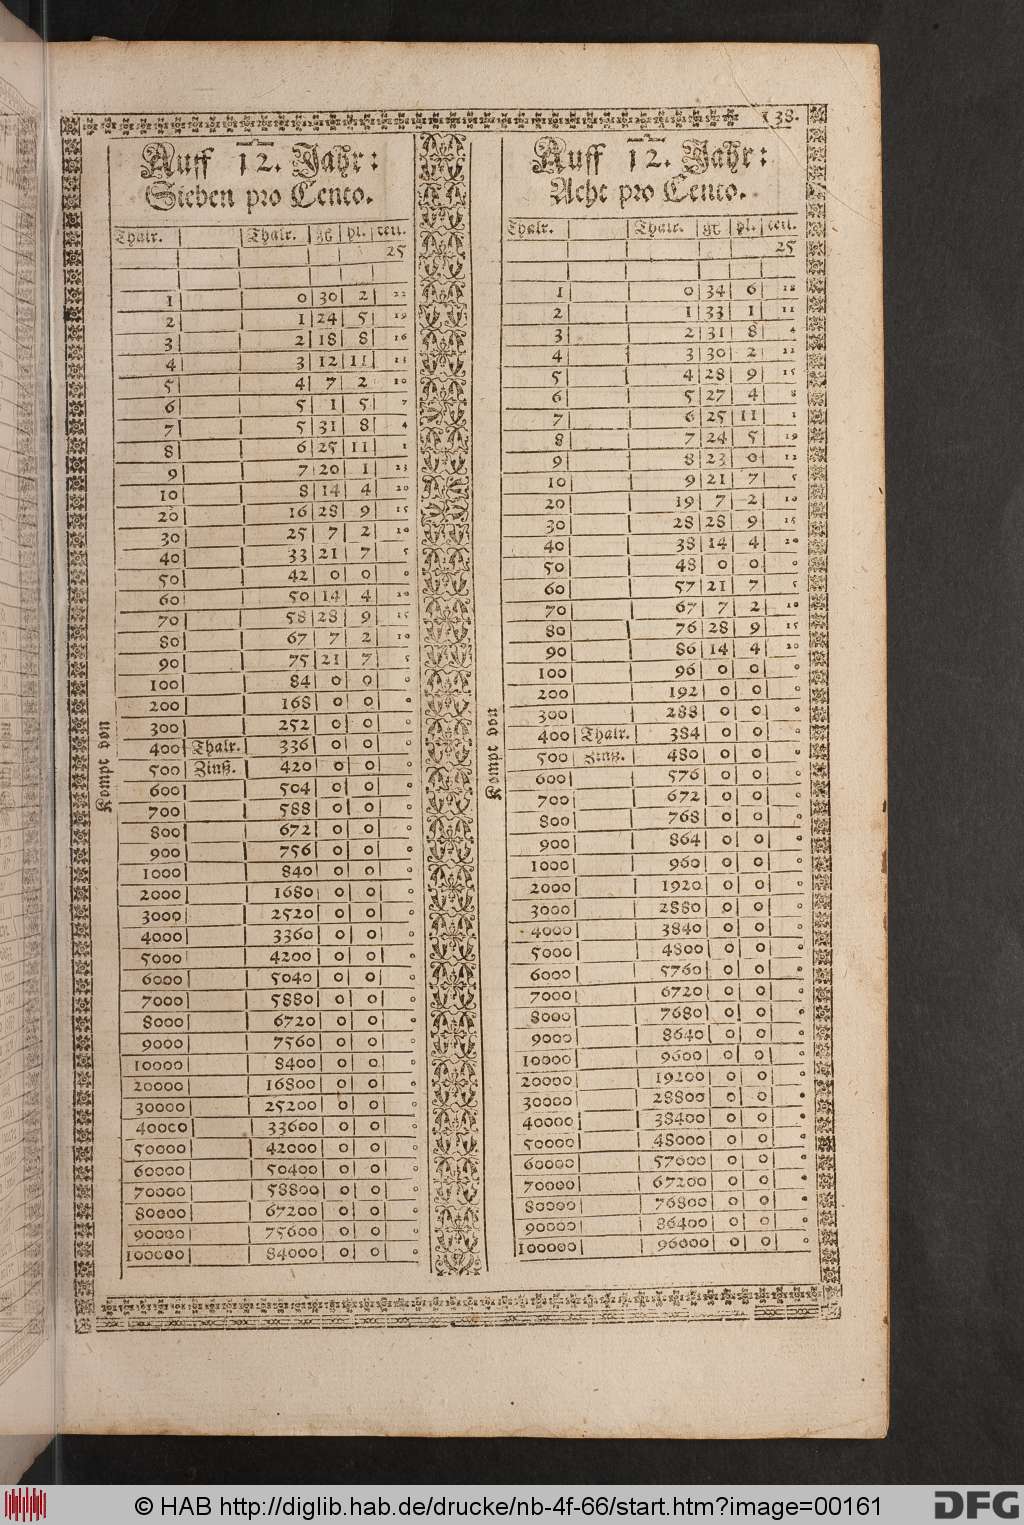 138.
Auff 12. Jahr:
Sieben pro Cento.
Thalr. Thalr. gℓ pl. cen.
25
1 0 30 2 22
2 1 24 5 19
3 2 18 8 16
4 3 12 11 13
5 4 7 2 10
6 5 1 5 7
7 5 31 8 4
8 6 25 11 1
9 7 20 1 23
10 8 14 4 20
20 16 28 9 15
30 25 7 2 10
40 33 21 7 5
50 42 0 0 0
60 50 14 4 20
70 58 28 9 15
80 67 7 2 10
90 75 21 7 5
100 84 0 0 0
200 168 0 0 0
300 252 0 0 0
400 Thalr. 336 0 0 0
500 Zinß. 420 0 0 0
600 504 0 0 0
700 588 0 0 0
800 672 0 0 0
900 756 0 0 0
1000 840 0 0 0
2000 1680 0 0 0
3000 2520 0 0 0
4000 3360 0 0 0
5000 4200 0 0 0
6000 5040 0 0 0
7000 5880 0 0 0
8000 6720 0 0 0
9000 7560 0 0 0
10000 8400 0 0 0
20000 16800 0 0 0
30000 25200 0 0 0
40000 33600 0 0 0
50000 42000 0 0 0
60000 50400 0 0 0
70000 58800 0 0 0
80000 67200 0 0 0
90000 75600 0 0 0
100000 84000 0 0 0
Kompt von
Auff 12. Jahr:
Acht pro Cento.
Thalr. Thalr. gℓ pl. cen.
25
1 0 34 6 18
2 1 33 1 11
3 2 31 8 4
4 3 30 2 22
5 4 28 9 15
6 5 27 4 8
7 6 25 11 1
8 7 24 5 19
9 8 23 0 12
10 9 21 7 5
20 19 7 2 10
30 28 28 9 15
40 38 14 4 20
50 48 0 0 0
60 57 21 7 5
70 67 7 2 10
80 76 28 9 15
90 86 14 4 20
100 96 0 0 0
200 192 0 0 0
300 288 0 0 0
400 Thalr. 384 0 0 0
500 Zinß. 480 0 0 0
600 576 0 0 0
700 672 0 0 0
800 768 0 0 0
900 864 0 0 0
1000 960 0 0 0
2000 1920 0 0 0
3000 2880 0 0 0
4000 3840 0 0 0
5000 4800 0 0 0
6000 5760 0 0 0
7000 6720 0 0 0
8000 7680 0 0 0
9000 8640 0 0 0
10000 9600 0 0 0
20000 19200 0 0 0
30000 28800 0 0 0
40000 38400 0 0 0
50000 48000 0 0 0
60000 57600 0 0 0
70000 67200 0 0 0
80000 76800 0 0 0
90000 86400 0 0 0
100000 96000 0 0 0
Kompt von
© HAB http://diglib.hab.de/drucke/nb-4f-66/start.htm?image=00161
DFG